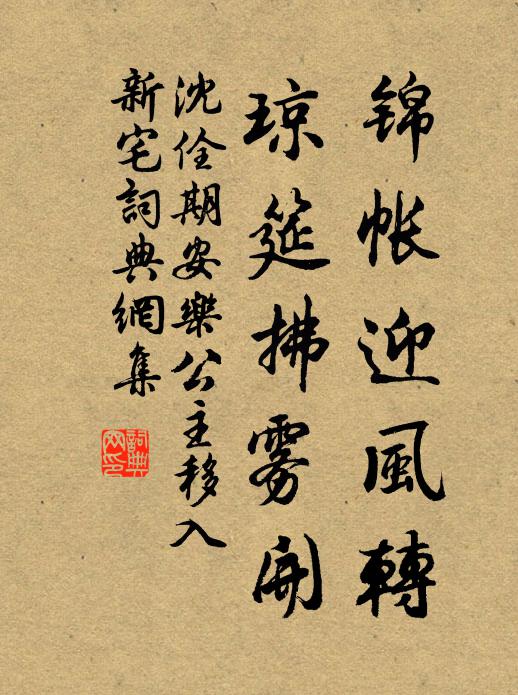 锦帐迎風轉
琼筵拂雾開
沈佺期安樂公主移入
新宅詞典網集
詞典
网印